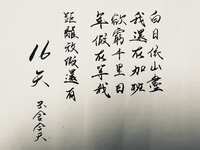 白日依山盡
我還在加班
欲窮千里目
年假在等我
距離放假還有
16天